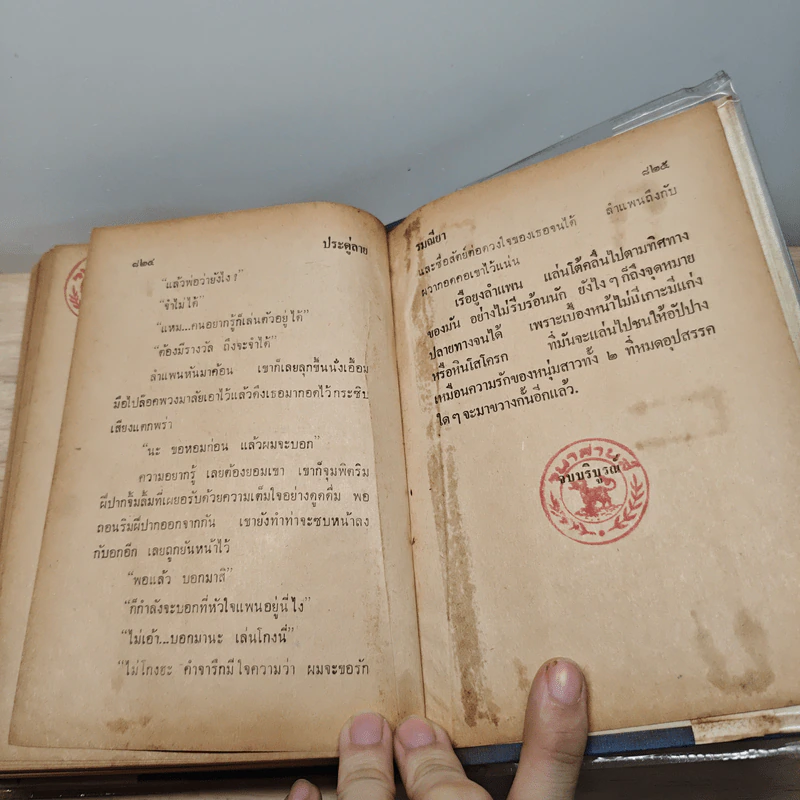 ๘๒๔
ประตู่ลาย
“แล้วพ่อว่ายังไง?”
“จำไม่ได้”
“แหม...คนอยากรู้ก็เล่นตัวอยู่ได้”
“ต้องมีรางวัล ถึงจะจำได้”
ลำแพนหันมาค้อน เขาก็เลยลุกขึ้นนั่งเอื้อม
มือไปล็อคพวงมาลัยเอาไว้แล้วดึงเธอมากอดไว้ กระซิบ
เสียงแตกพร่า
“นะ ขอหอมก่อน แล้วผมจะบอก”
ความอยากรู้ เลยต้องยอมเขา เขาก็จุมพิตริม
ฝีปากจิ้มลิ้มที่เผยอรับด้วยความเต็มใจอย่างดูดดื่ม พอ
ถอนริมฝีปากออกจากกัน เขายังทำท่าจะซบหน้าลง
กับอกอีก เลยถูกยันหน้าไว้
“พอแล้ว บอกมาสิ”
“ก็กำลังจะบอกที่หัวใจแพนอยู่นี่ไง”
“ไม่เอา...บอกมานะ เล่นโกงนี่”
“ไม่โกงฮะ คำจารึกมีใจความว่า ผมจะขอรัก
๘๒๕
รมณียา
และซื่อสัตย์ต่อดวงใจของเธอจนได้ ลำแพนถึงกับ
ผวากอดคอเขาไว้แน่น
เรือยูงลำแพน แล่นโต้คลื่นไปตามทิศทาง
ของมัน อย่างไม่รีบร้อนนัก ยังไง ๆ ก็ถึงจุดหมาย
ปลายทางจนได้ เพราะเบื้องหน้าไม่มีเกาะมีแก่ง
หรือหินโสโครก ที่มันจะแล่นไปชนให้อัปปาง
เหมือนความรักของหนุ่มสาวทั้ง ๒ ที่หมดอุปสรรค
ใด ๆ จะมาขวางกั้นอีกแล้ว.
จบบริบูรณ์